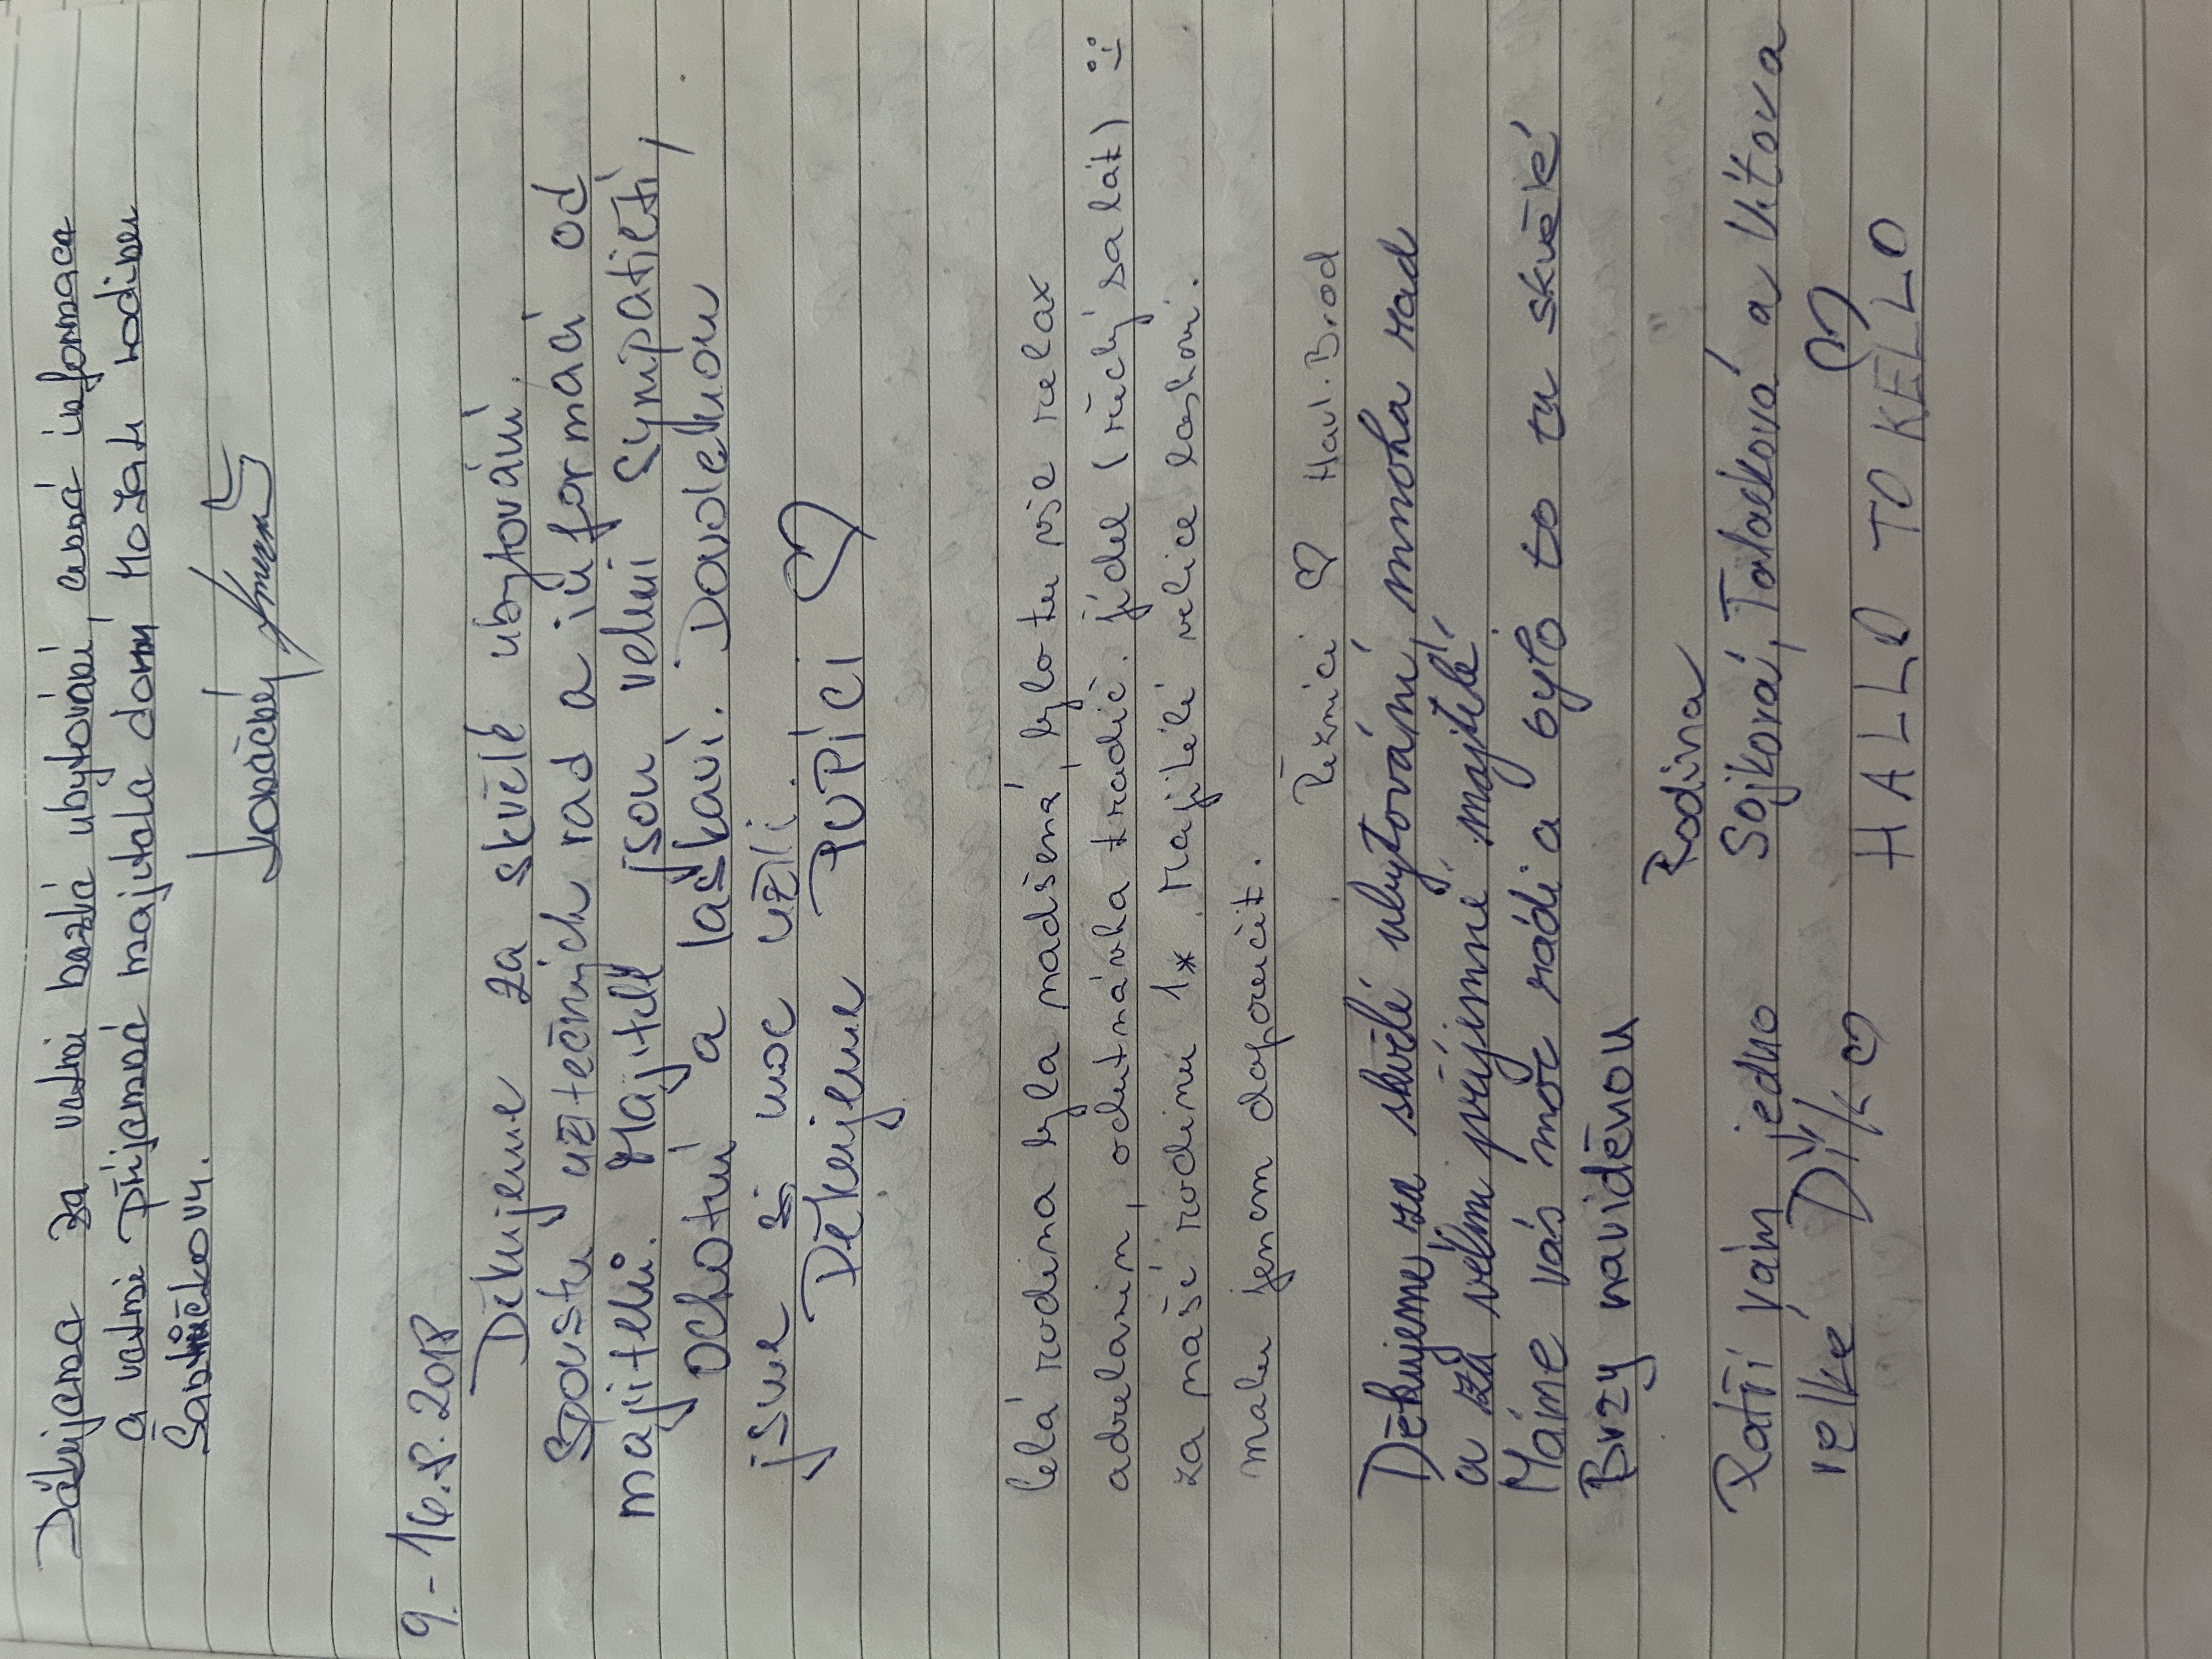 Děkujeme za velmi hezké ubytování, cenné informace
a velmi příjemné majitele domu Mozah rodinu
Santnečkovu.
9.-16.8.2018
Děkujeme za skvělé ubytování.
Spoustu užitečných rad a informací od
majitelů. Majitelé jsou velmi sympatičtí,
ochotní a laskaví. Dovolenou
jsme si moc užili.
Děkujeme PUPÍCI ♡
Celá rodina byla nadšená, bylo tu vše relax
adrelanin, ochutnávka tradič. jídel (řecký salát) :)
za naší rodinu 1* Majiteli velice laskaví.
mohu jenom doporučit.
Řezníci ♡ Havl. Brod
Děkujeme za skvělé ubytování, mnoha rad
a za velmi příjemné majitelé.
Máme vás moc rádi a bylo to tu skvělé
Brzy naviděnou
Rodina
Patří vám jedno Sojková, Talačková a Vítova
velké Dík ♡ ♡
HALLO TO KELLO